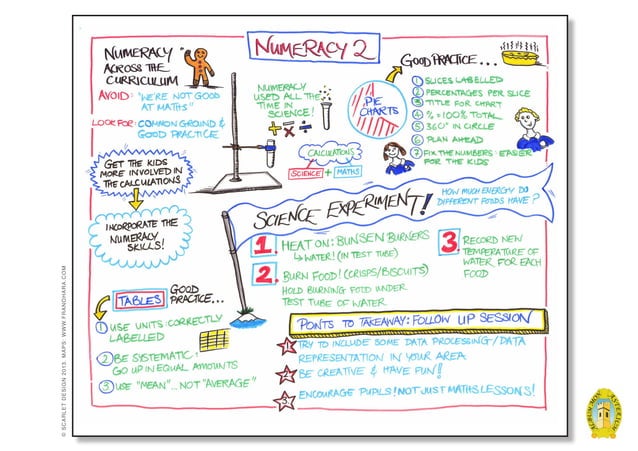 NUMERACY 2
NUMERACY
ACROSS THE
CURRICULUM
AVOID: "WE'RE NOT GOOD
AT MATHS"
LOOK FOR: COMMON GROUND &
GOOD PRACTICE
GET THE KIDS
MORE INVOLVED IN
THE CALCULATIONS
INCORPORATE THE
NUMERACY
SKILLS!
NUMERACY
USED ALL THE
TIME IN
SCIENCE!
+ × - ÷
CALCULATIONS
SCIENCE + MATHS
PIE
CHARTS
GOOD PRACTICE...
1 SLICES LABELLED
2 PERCENTAGES PER SLICE
3 TITLE FOR CHART
4 % = 100% TOTAL
5 360° IN CIRCLE
6 PLAN AHEAD
7 FIX THE NUMBERS: EASIER
FOR THE KIDS
SCIENCE EXPERIMENT!
HOW MUCH ENERGY DO
DIFFERENT FOODS HAVE?
1. HEAT ON: BUNSEN BURNERS
↳ WATER! (IN TEST TUBE)
2. BURN FOOD! (CRISPS/BISCUITS)
HOLD BURNING FOOD UNDER
TEST TUBE OF WATER
3. RECORD NEW
TEMPERATURE OF
WATER FOR EACH
FOOD
TABLES GOOD
PRACTICE...
1 USE UNITS: CORRECTLY
LABELLED
2 BE SYSTEMATIC:
GO UP IN EQUAL AMOUNTS
3 USE "MEAN"... NOT "AVERAGE"
PONTS TO TAKEAWAY: FOLLOW UP SESSION
1 TRY TO INCLUDE SOME DATA PROCESSING/DATA
REPRESENTATION IN YOUR AREA
2 BE CREATIVE & HAVE FUN!!
3 ENCOURAGE PUPILS! NOT JUST MATHS LESSONS!
© SCARLET DESIGN 2013. MAPS: WWW.FRANOHARA.COM